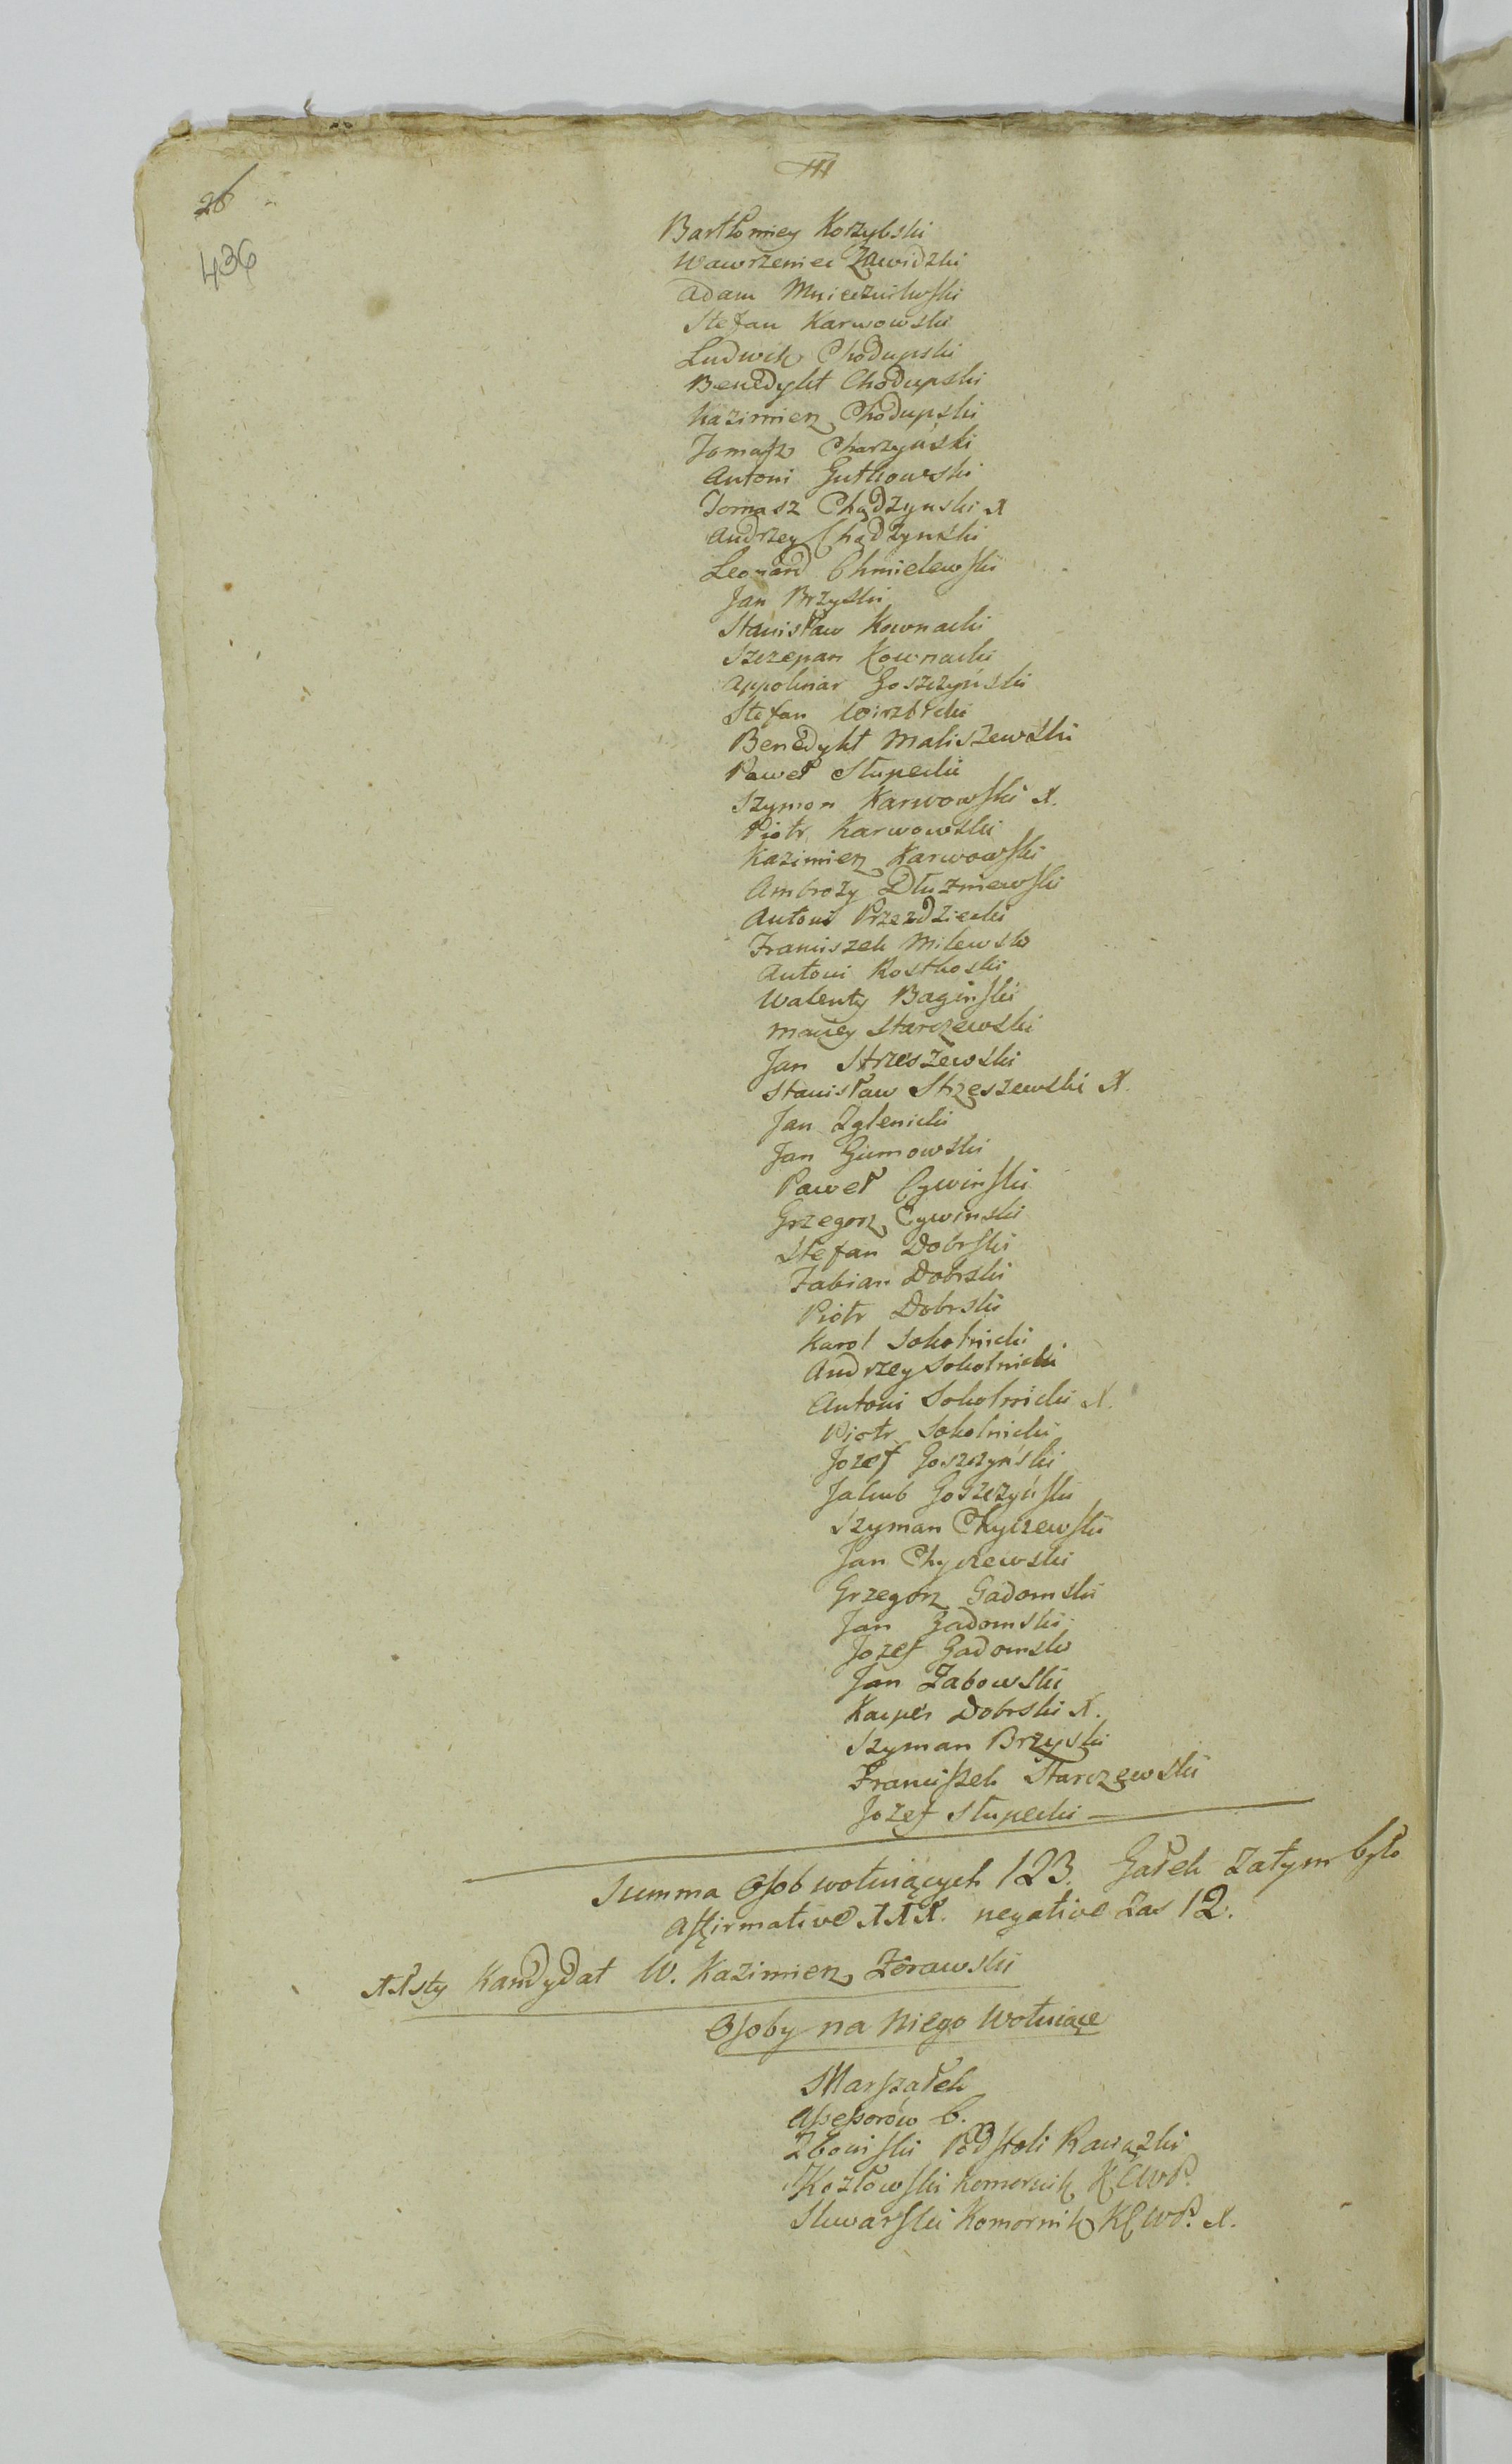 26
436
Bartłomiey Korzybski
Wawrzeniec Zawidzki
Adam
Stefan Karwowski
Ludwik Chodupski
Benedykt Chodupski
Kazimierz Chodupski
Tomasz Charzyński
Antoni Gutkowski
Tomasz Chądzynski X
Andrzey Chądzynski
Leonard Chmielewski
Jan Brzyski
Stanisław Kownacki
Szczepan Kownacki
Appolinar Goszczyński
Stefan Wirzbicki
Benedykt Maliszewski
Paweł Słupecki
Szymon Karwowski X.
Piotr Karwowski
Kazimierz Karwowski
Ambroży Dłużniewski
Antoni Przezdziecki
Franciszek Milewski
Antoni Rostkoski
Walenty Bagiński
Maciey Starczewski
Jan Strzeszewski
Stanisław Strzeszewski X.
Jan Zglenicki
Jan Gumowski
Paweł Cywiński
Grzegorz Cywinski
Stefan Dobrski
Fabian Dobrski
Piotr Dobrski
Karol Sokolnicki
Andrzey Sokolnicki
Antoni Sokolnicki X.
Piotr Sokolnicki
Jozef Goszczyński
Jakub Goszczyński
Szyman Chyczewski
Jan Chyczewski
Grzegorz Gadomski
Jan Gadomski
Jozef Gadomski
Jan Żabowski
Kacper Dobrski X.
Szyman Brzyski
Franciszek Starczewski
Jozef Słupecki
Summa Osob wotuiących 123. Gałek zatym było
affirmative negative zas 12.
Kandydat W. Kazimierz Zórawski
Osoby na Niego Wotuiące
Marszałek
Assessorów 6.
Zboiński Podstoli Rawazki
Kozłowski Komornik
Skwarski Komornik X.